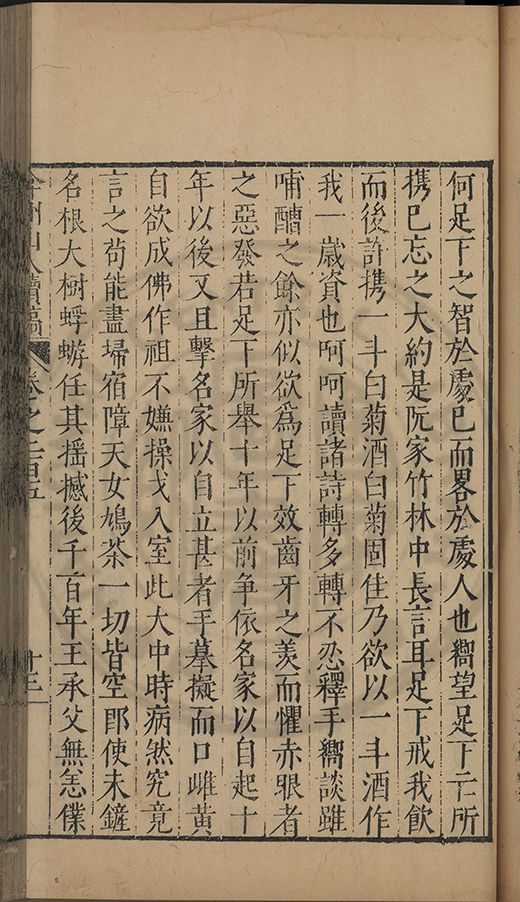 何足下之智於處已而畧於處人也嚮望足下二仁所
携已忘之大約是阮家竹林中長言耳足下戒我飲
而後許携一斗白菊酒白菊固佳乃欲以一斗酒作
我一歲資也呵呵讀諸詩轉多轉不忍釋手嚮談雖
哺醩之餘亦似欲爲足下效齒牙之羡而懼赤眼者
之惡發若足下所舉十年以前爭依名家以自起十
年以後又且擊名家以自立甚者手摹擬而口雌黃
自欲成佛作祖不嫌操戈入室此大中時病然究竟
言之苟能盡埽宿障天女鳩荼一切皆空卽使未鏟
名根大樹蜉蝣任其揺撼後千百年王承父無恙僕
弇州山人續稿 卷之二百五 十三